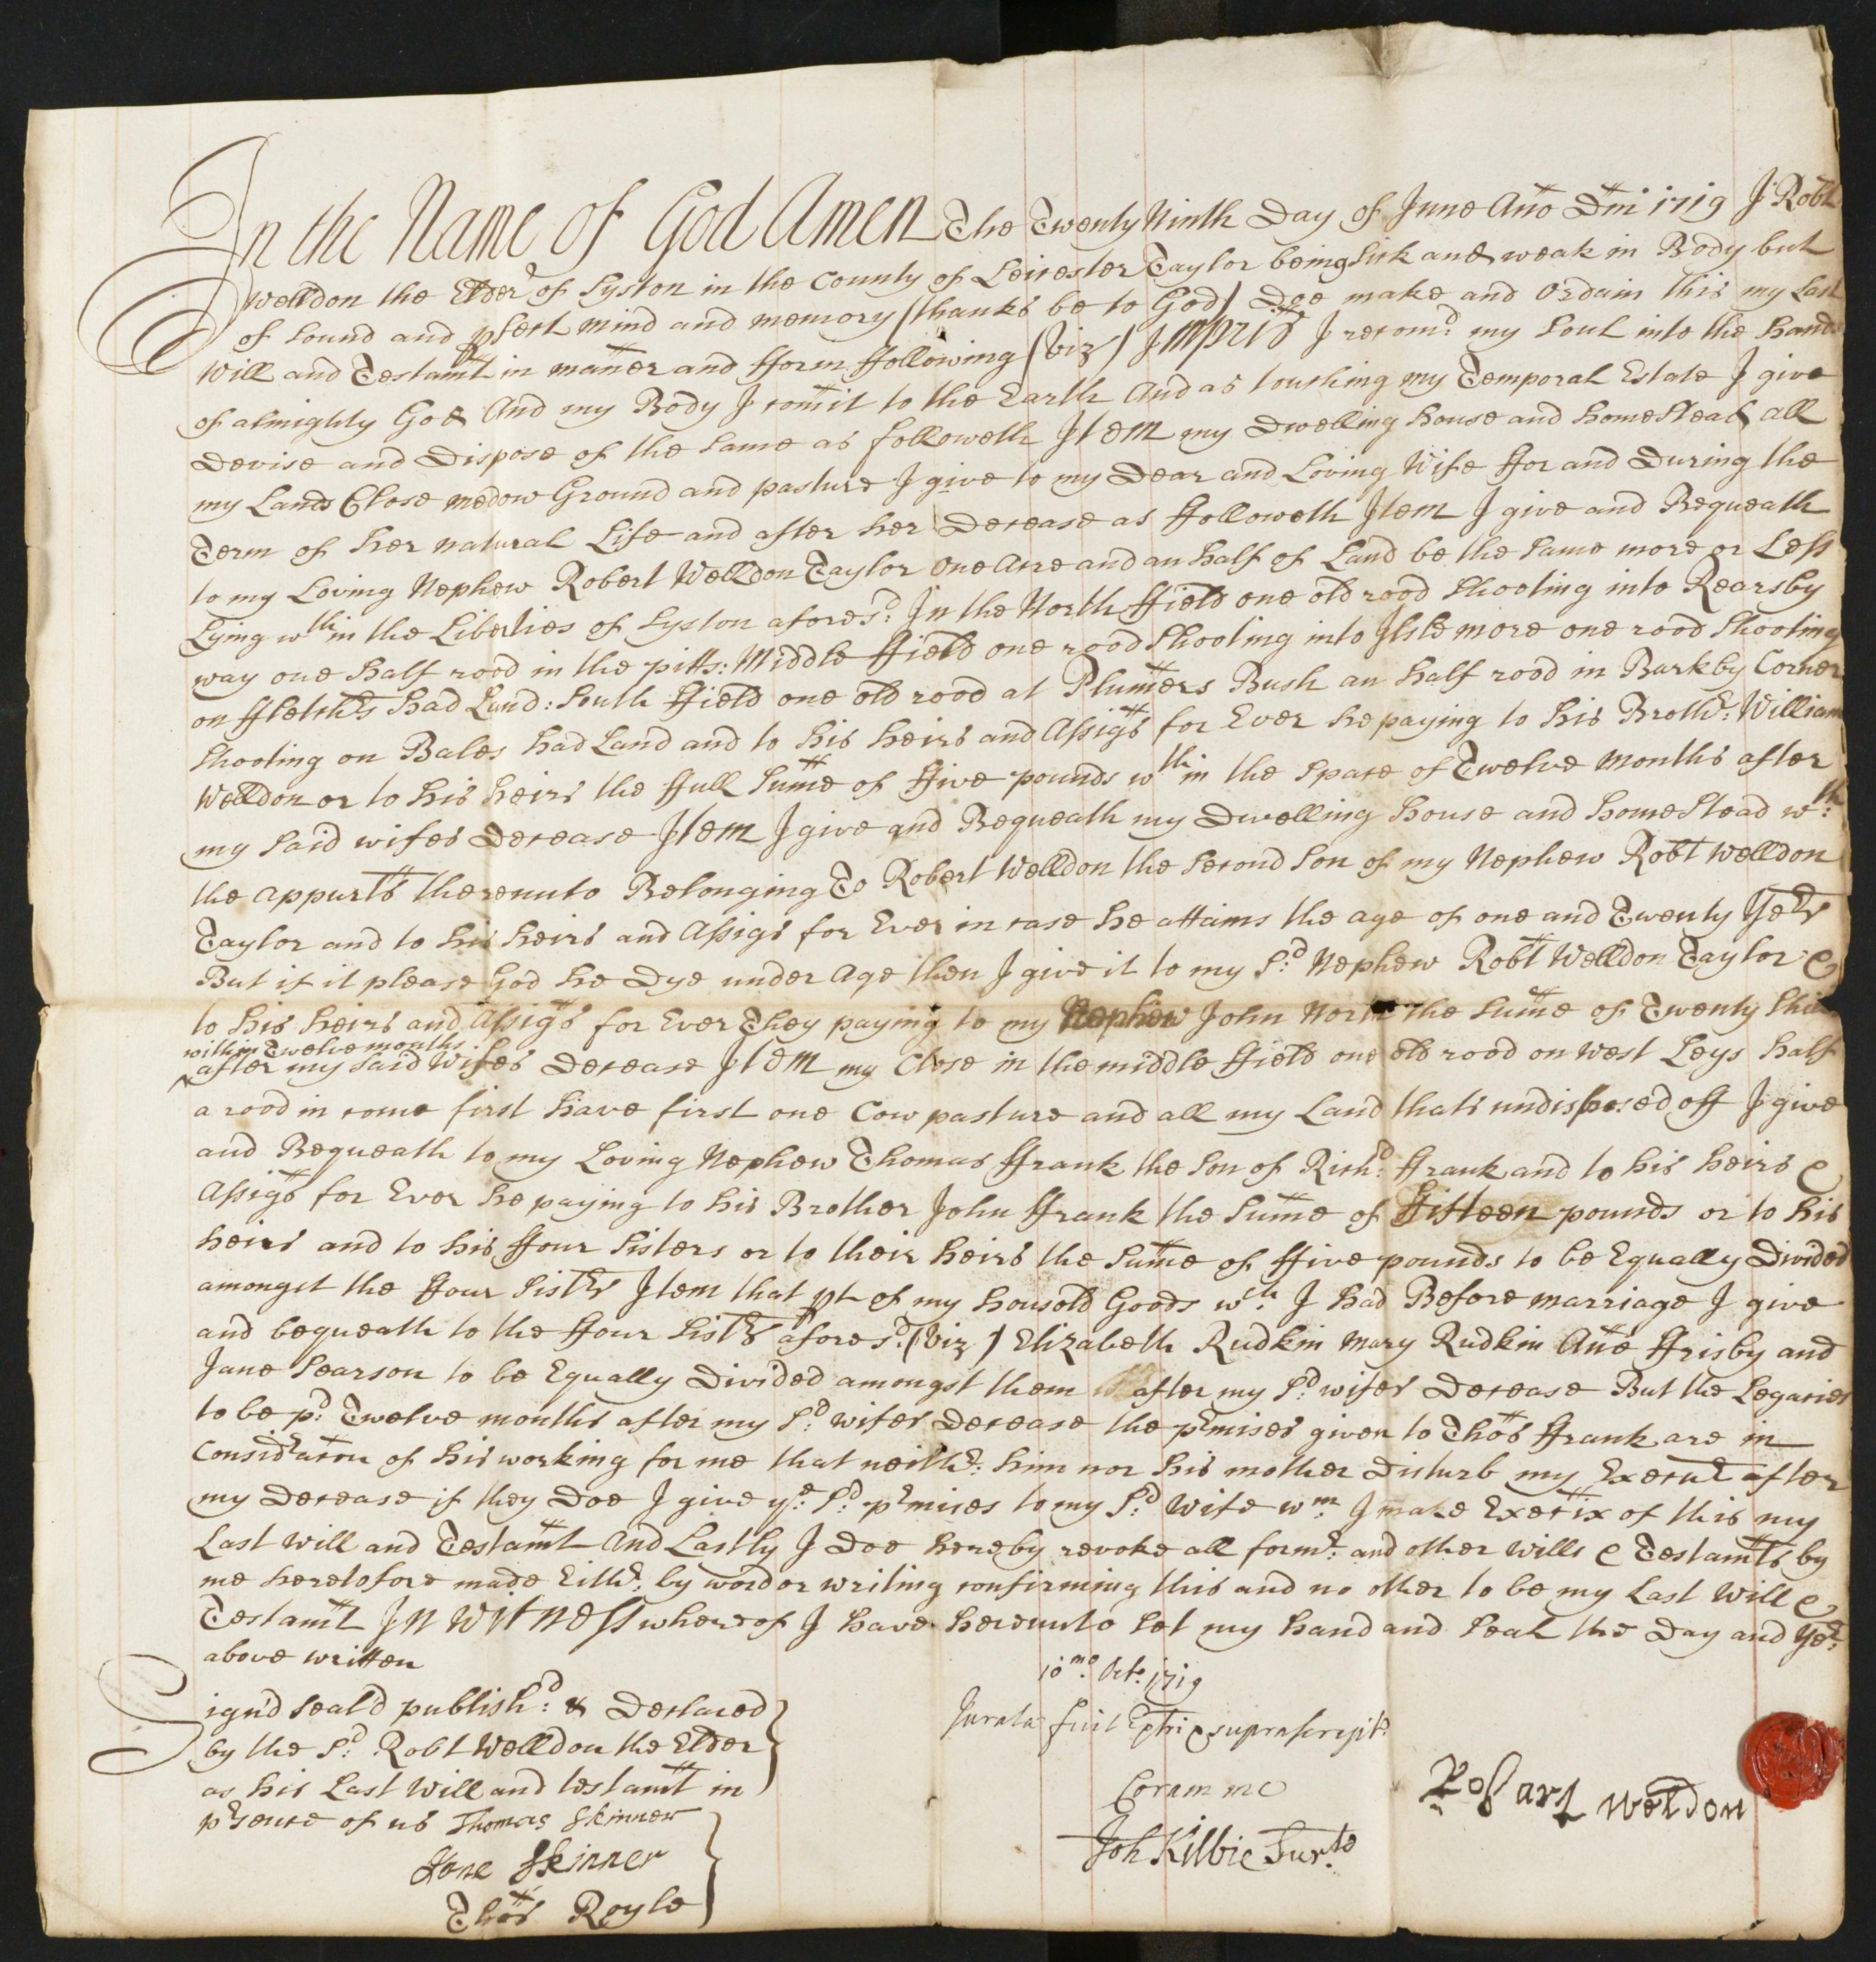 In the Name of God Amen The Twenty Ninth Day of June Año Dm̃i 1719 I Robt
Welldon the Elder of Syston in the County of Leicester Taylor being Sick and weak in Body but
of Sound and pfect mind and memory (thanks be to God) Doe make and Ordain this my Last
Will and Testamt in mañer and fform ffollowing (Viz) Impris I recomd: my Soul into the hands
of almighty God And my Body I com̃it to the Earth And as touching my Temporal Estate I give
Devise and Dispose of the Same as followeth Item my Dwelling house and homestead all
my Lands Close medow Ground and pasture I give to my Dear and Loving Wife ffor and During the
Term of her natural Life and after her Decease as ffolloweth Item I give and Bequeath
to my Loving Nephew Robert Welldon Taylor one Acre and an half of Land be the Same more or Less
Lying wthin the Liberties of Syston aforesd: In the North ffield one old rood Shooting into Rearsby
way one half rood in the pitts: Middle ffield one rood Shooting into Ilslemore one rood Shooting
on ffletchers had Land: South ffield one old rood at Plum̃ers Bush an half rood in Barkby Corner
Shooting on Bales had Land and to his heirs and Assigs for Ever he paying to his Brothr: William
Welldon or to his heirs the ffull Sum̃e of ffive pounds wthin the Space of Twelve Months after
my Said wifes Decease Item I give and Bequeath my Dwelling house and homestead wth:
the appurts thereunto Belonging To Robert Welldon the Second Son of my Nephew Robt Welldon
Taylor and to his heirs and Assigs for Ever in case he attains the age of one and Twenty Yers
But if it please God he Dye under Age then I give it to my Sd: Nephew Robt Welldon Taylor &
to his heirs and Assigs for Ever They paying to my Nephew John North the Sum̃e of Twenty Shill
within Twelve months
^after my Said Wifes Decease Item my Close in the middle ffield one old rood on West Leys half
a rood in come first have first one Cow pasture and all my Land thats undisposed off I give
and Bequeath to my Loving Nephew Thomas ffrank the Son of Richd: ffrank and to his heirs &
Assigs for Ever he paying to his Brother John ffrank the Sum̃e of ffifteen pounds or to his
heirs and to his ffour Sisters or to their heirs the Sum̃e of ffive pounds to be Equally Divided
amongst the ffour Sistrs Item that pt of my housold Goods wch: I had Before marriage I give
and bequeath to the ffour Sistrs aforesd: (Viz) Elizabeth Rudkin Mary Rudkin Añe ffrisby and
Jane Pearson to be Equally Divided amongst them after my Sd: wifes Decease But the Legacies
to be pd: Twelve months after my Sd: wifes Decease the prmises given to Thos ffrank are in
Considration of his working for me that neithr: him nor his mother Disturb my Execut after
my Decease if they Doe I give ye: Sd: prmises to my Sd: Wife wm: I make Execix of this my
Last Will and Testamt And Lastly I Doe hereby revoke all formr: and other Wills & Testamts by
me heretofore made Eithr: by word or writing confirming this and no other to be my Last Will &
Testamt In Witness whereof I have hereunto Set my hand and Seal the Day and Yer:
above written
Sign'd Seal'd publishd: & Declared
by the Sd: Robt Welldon the Elder
as his Last Will and testamt in
prsence of us Thomas Skinner
Jone Skinner
Thos Royle
10mo: Octo: 1719
Jurata fuit Extrix suprascript:
Coram me
Joh Kilbie Surte
Robart weldon